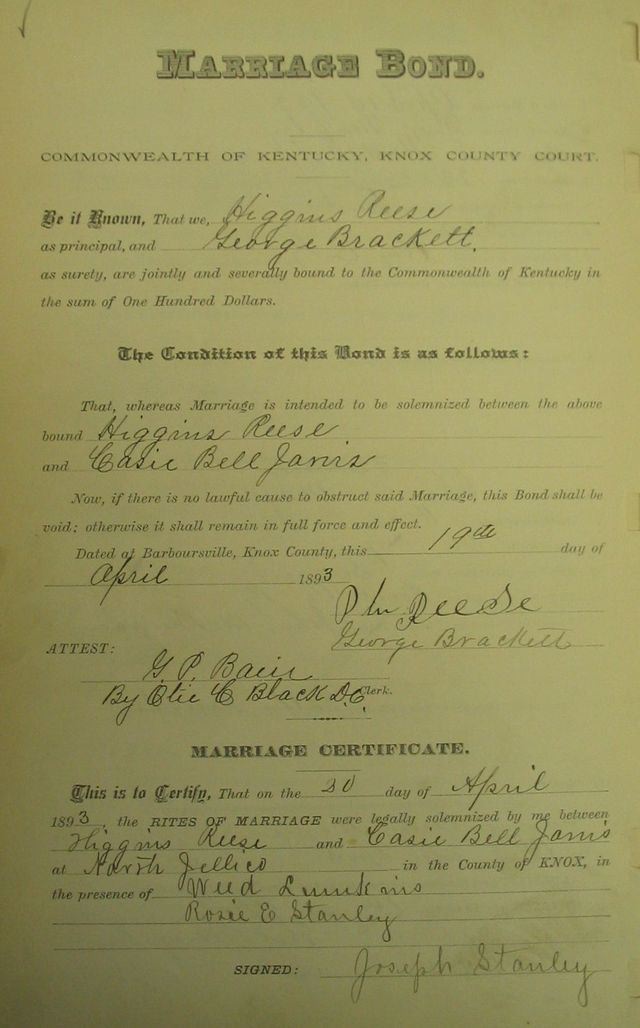 MARRIAGE BOND.
COMMONWEALTH OF KENTUCKY, KNOX COUNTY COURT.
Be it Known, That we, Higgins Reese
as principal, and George Brackett.
as surety, are jointly and severally bound to the Commonwealth of Kentucky in
the sum of One Hundred Dollars.
The Condition of this Bond is as follows:
That, whereas Marriage is intended to be solemnized between the above
bound Higgins Reese
and Casie Bell Jarvis
Now, if there is no lawful cause to obstruct said Marriage, this Bond shall be
void: otherwise it shall remain in full force and effect.
Dated at Barboursville, Knox County, this 19th day of
April 1893
Reese
George Brackett
ATTEST:
G. P. Bain
By C Black D.C. Clerk.
MARRIAGE CERTIFICATE.
This is to Certify, That on the 20 day of April
1893, the RITES OF MARRIAGE were legally solemnized by me between
Higgins Reese and Casie Bell Jarvis
at North Jellico in the County of KNOX, in
the presence of Weed
Rosie E Stanley
SIGNED: Joseph Stanley